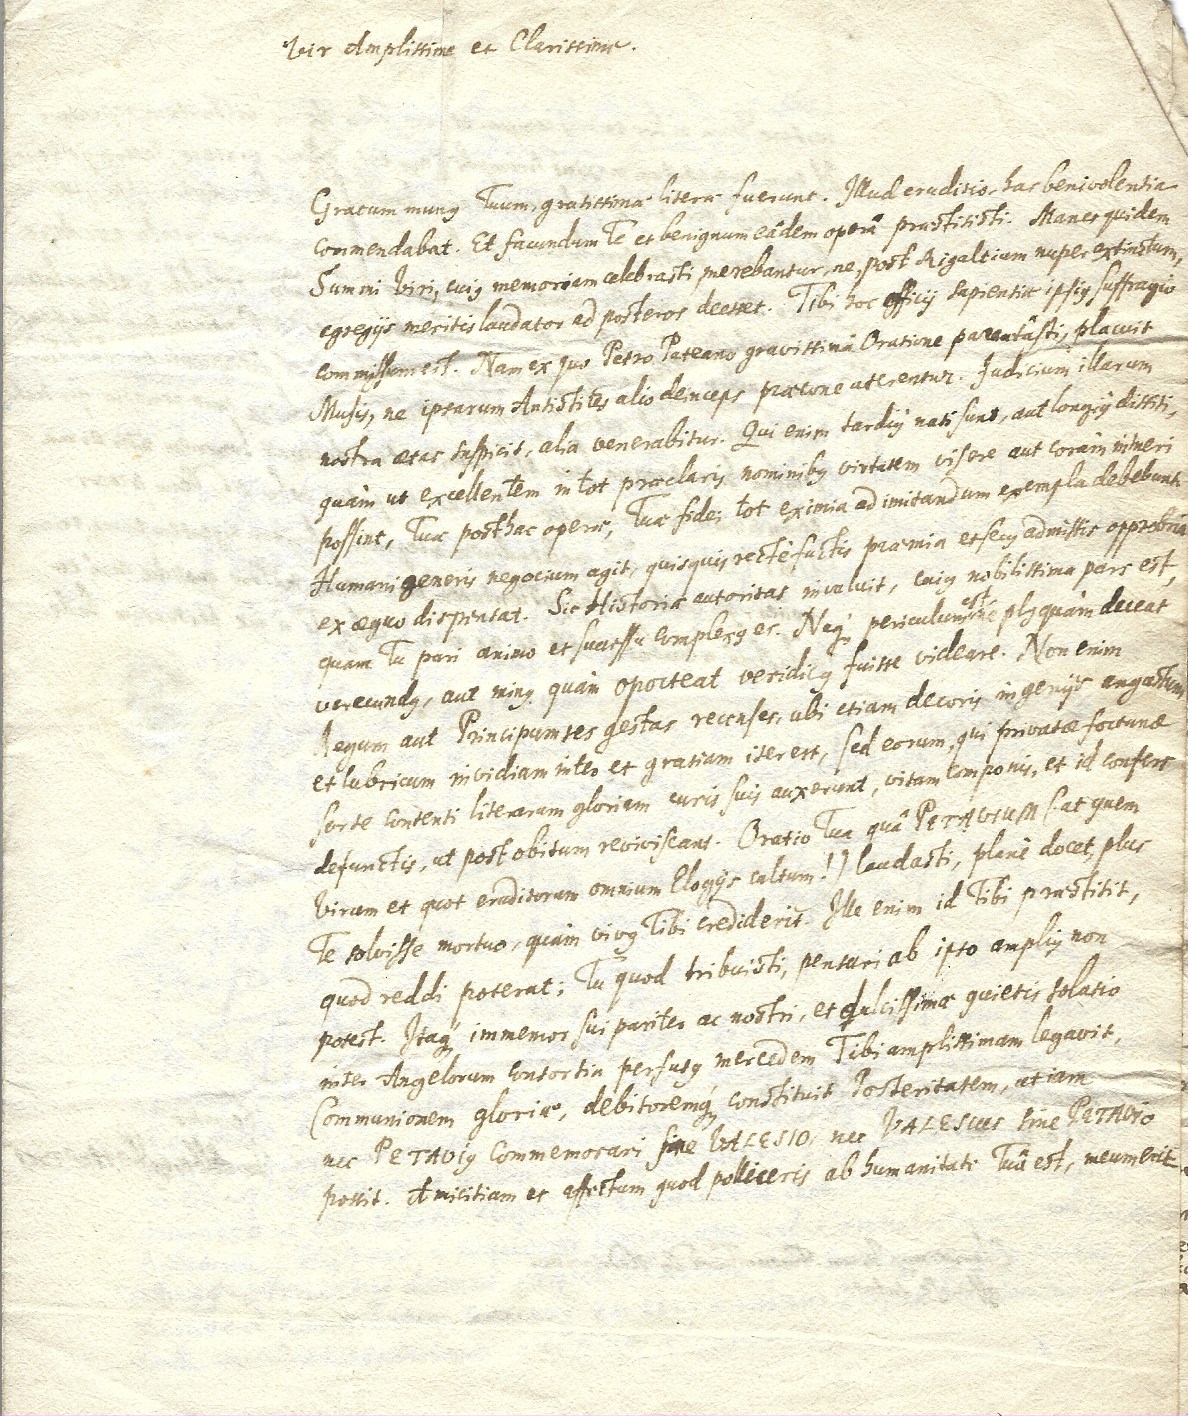 Vir Amplissime et Clarissime.
Gratum munus Tuum, gratissimæ literæ fuerunt. Illud eruditio, has benivolentia
commendabat. Et facundum Te et benignum eâdem operâ præstitisti. Manes quidem
Summi Viri, cuius memoriam celebrasti, merebantur, ne, post Rigaltium nuper extinctum,
egregijs meritis laudator ad posteros deesset. Tibi hoc officij sapientiæ ipsius suffragio
commissum est. Nam ex quo Petro Puteano gravissimâ Oratione parentâsti, placuit
Musis, ne ipsarum Antistites alio deinceps præcone uterentur. Judicium illarum
nostra ætas suspicit, alia venerabitur. Qui enim tardius nati sunt, aut longius dissiti,
quàm ut excellentem in tot præclaris nominibus virtutem visere aut coràm intueri
possint, Tuæ posthac operæ, Tuæ fidei tot eximia ad imitandum exempla debebunt.
Humani generis negocium agit, quisquis rectè factis præmia et secus admissis opprobria
ex æquo dispensat. Sic Historiæ autoritas invaluit, cuius nobilissima pars est,
quam Tu pari animo et successu complexus es. Neq; periculum est, ne plus quàm deceat
verecundus, aut minus quàm oporteat veridicus fuisse videare. Non enim
Regum aut Principum res gestas recenses, ubi etiam decoris ingenijs angustum
et lubricum invidiam inter et gratiam iter est, sed eorum, qui privatæ fortunæ
sorte contenti literarum gloriam curis suis auxerunt, vitam componis, et id confers
defunctis, ut post obitum reviviscant. Oratio Tua quâ PETAVIUM (at quem
Virum et quot eruditorum omnium Elogijs cultum!) laudasti, planè docet, plus
Te solvisse mortuo, quàm vivus Tibi crediderit. Ille enim id Tibi præstitit,
quod reddi poterat; Tu quod tribuisti, pensari ab ipso amplius non
potest. Itaq; immemor sui pariter ac nostri, et dulcissimæ quietis solatio
inter Angelorum consortia perfusus mercedem Tibi amplissimam legavit,
Communionem gloriæ, debitoremq; constituit Posteritatem, ut iam
nec PETAVIus commemorari sine VALESIO, nec VALESIus sine PETAVIO
possit. Amicitiam et affectum quod polliceris ab humanitate Tuâ est, meum erit